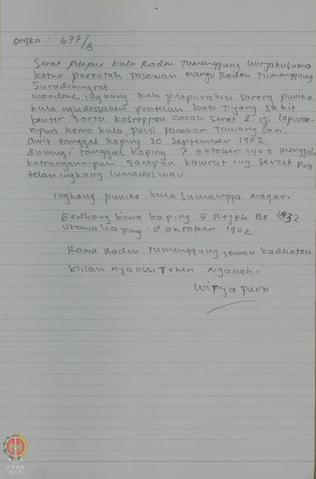 Ongka : 677/B
Serat pilapur kula Raden Tumenggung Wirjakusuma
katur parentah pasowan Mangu Raden Tumenggung
Suradiningrat
Wondene ingkang kula pilapuraken, sareng puniko
kula ngladosaken pratelan bab Tiyang Sakit
benter sarta kosreppen cacah serat 2 iji lapura-
nipun konco kula, pulisi Panekar Tawang Sari.
awit tanggal kaping 30 September 1902
dumugi tanggal kaping 7 Oktober 1902 menggah
katranganipun sampun kawrat ing serat pra
telan ingkang lumados wau
Ingkang puniko kula sumangga Nagari
Gedhong Kiwa Kaping 5 Rejeb Be 1832
Utawa Kaping 8 Oktober 1902
Rama Raden Tumenggung sowan kadhaton
klilan ngaossi Teken Ngabehi
Wirya puri